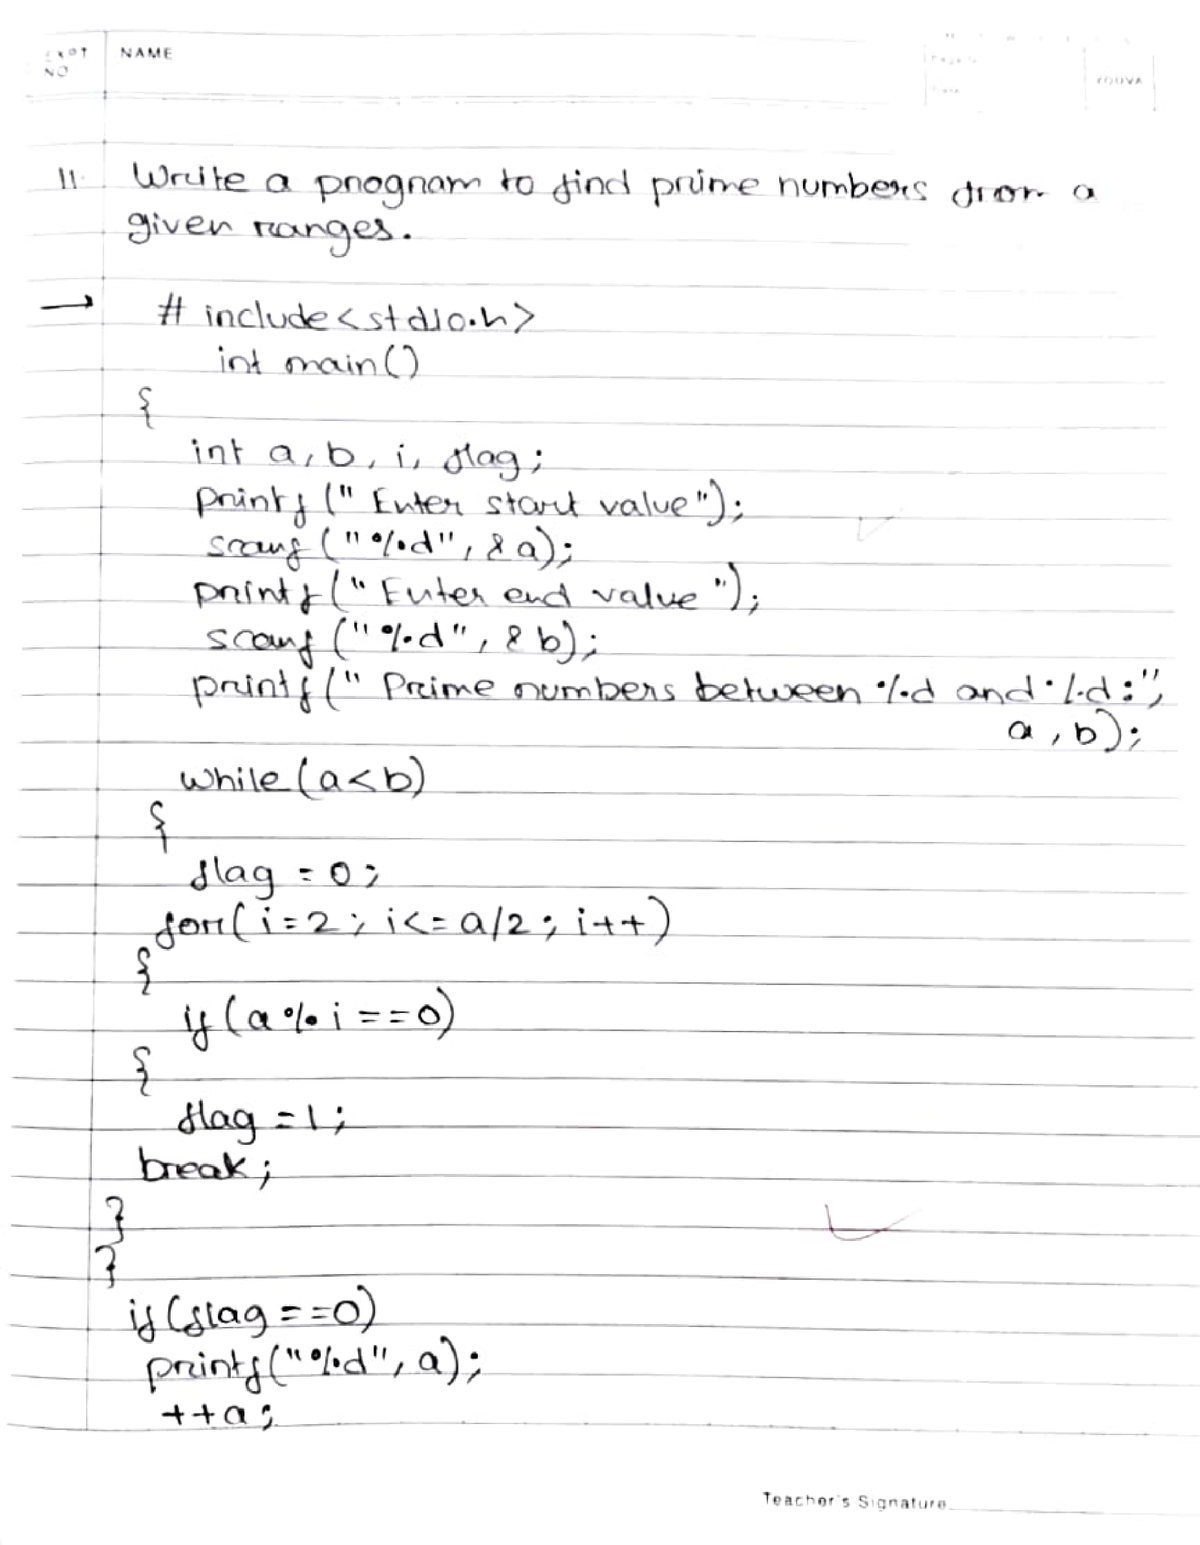 EXPT NO
NAME
YOUVA
11. Write a program to find prime numbers from a
given ranges.
→ # include<stdio.h>
int main()
{
int a, b, i, flag;
printf (" Enter start value");
scanf ("%d", &a);
printf (" Enter end value ");
scanf ("%d", &b);
printf (" Prime numbers between %d and %d :",
a, b);
while (a<b)
{
flag = 0;
for( i=2; i<= a/2; i++)
{
if (a % i ==0)
{
flag =1;
break;
}
}
if (flag ==0)
printf("%d", a);
++a;
Teacher's Signature